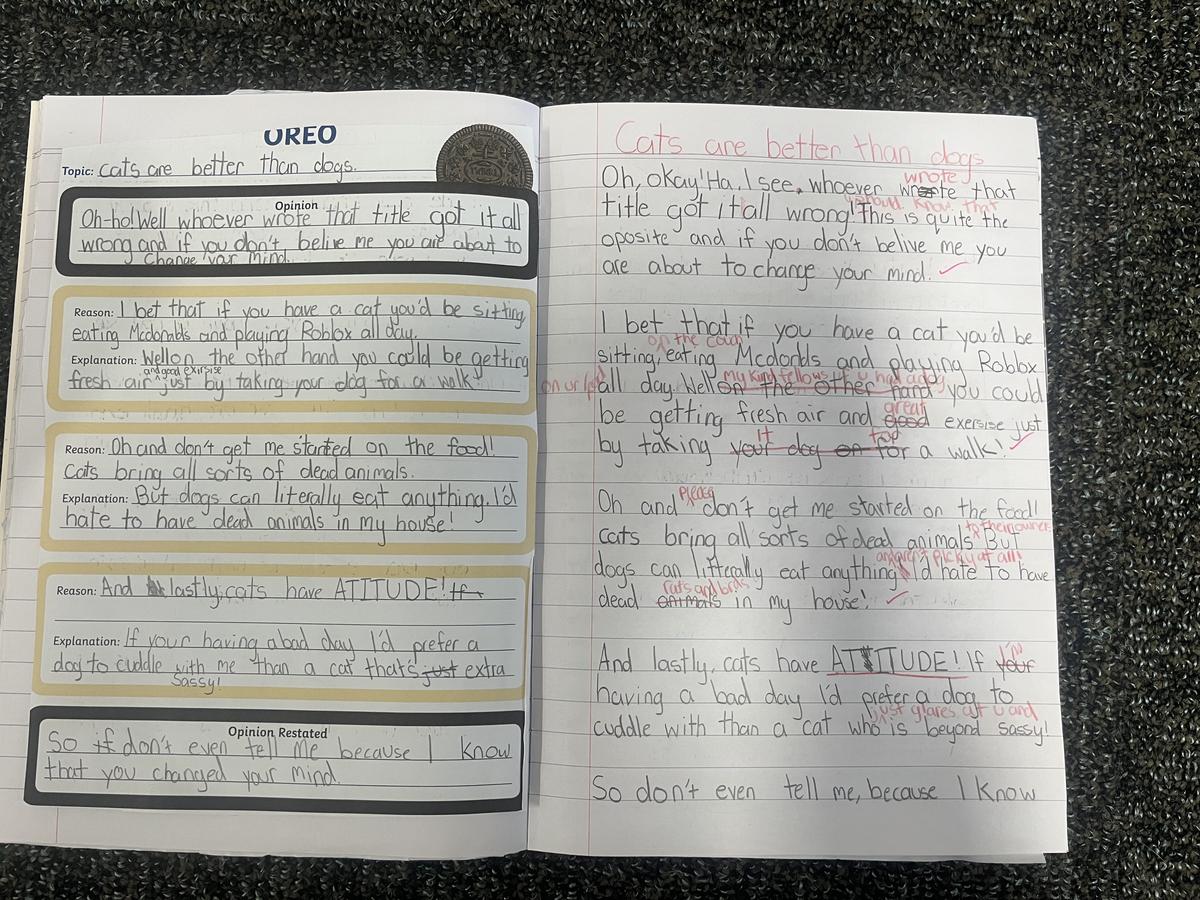 OREO
Topic: Cats are better than dogs.
Opinion
Oh-ho! Well whoever wrote that title got it all
wrong and if you don't, belive me you are abaut to
Change your mind.
Reason: I bet that if you have a cat you'd be sitting
eating Mcdonlds and playing Roblox all day.
Explanation: Well on the other hand you could be getting
and good exirsise
fresh air just by taking your dog for a walk!
Reason: Oh and don't get me started on the food!
Cats bring all sorts of dead animals.
Explanation: But dogs can literally eat anything. I'd
hate to have dead animals in my house!
Reason: And lastly, cats have ATITUDE! If
Explanation: If your having a bad day I'd prefer a
dog to cuddle with me than a cat that's just extra
Sassy!
Opinion Restated
So if don't even tell me because I know
that you changed your mind.
Cats are better than dogs
wrote
Oh, okay! Ha, I see, whoever wrote that
should know that
title got it all wrong! This is quite the
oposite and if you don't belive me you
are about to change your mind.
I bet that if you have a cat you'd be
on the couch
sitting, eating Mcdonlds and playing Roblox
my kind fellows u had a dog
all day. Well on the other hand you could
great
be getting fresh air and good exersise just
it
by taking your dog on for a walk!
Oh and please don't get me started on the food!
to their owner
cats bring all sorts of dead animals But
and aren't picky at all!
dogs can litterally eat anything I'd hate to have
rats and birds
dead animals in my house!
I'm
And lastly, cats have ATTITUDE! If your
having a bad day I'd prefer a dog to
just glares at u and
cuddle with than a cat who is beyond sassy!
So don't even tell me, because I know